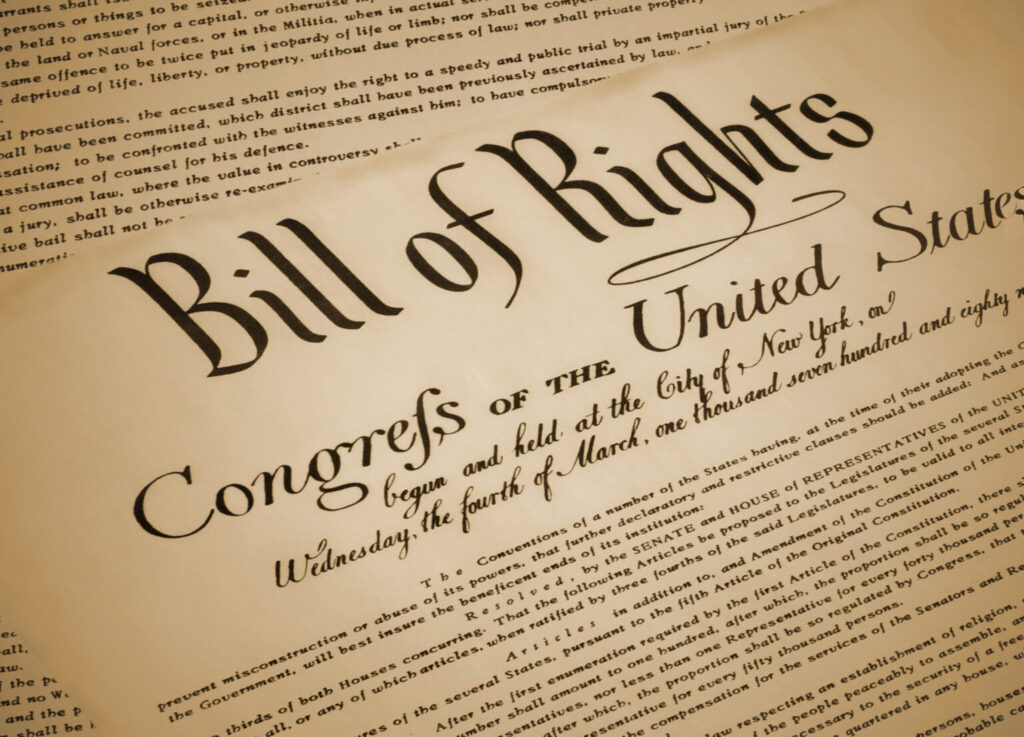 arrants shall is
persons or things to be seized
be held to answer for a capital, or otherwise
the land or Naval forces, or in the Militia, when in actual
same offence to be twice put in jeopardy of life or limb; nor shall be
deprived of life, liberty, or property, without due process of law; nor shall private property
prosecutions, the accused shall enjoy the right to a speedy and public trial by an impartial jury of the
have been committed, which district shall have been previously ascertained by law,
to be confronted with the witnesses against him; to have compulsory
assistance of counsel for his defence.
at common law, where the value in controversy
a jury, shall be otherwise
bail shall not be
Bill of Rights
Congreſs OF THE United States
begun and held at the City of New York, on
Wednesday, the fourth of March, one thousand seven hundred and eighty
The Conventions of a number of the States having, at the time of their adopting the
prevent misconstruction or abuse of its powers, that further declaratory and restrictive clauses should be added: And as
the Government, will best insure the beneficent ends of its institution;
Resolved, by the SENATE and HOUSE of REPRESENTATIVES of the
thirds of both Houses concurring. That the following Articles be proposed to the Legislatures of the several
all, or any of which articles, when ratified by three fourths of the said Legislatures, to be valid to all
Articles in addition to, and Amendment of the Constitution of the
of the several States, pursuant to the fifth Article of the Original Constitution.
After the first enumeration required by the first Article of the Constitution, there
shall amount to one hundred, after which, the proportion shall be so
nor less than one Representative for every forty thousand
after which, the proportion shall be so regulated by Congress, that
for every fifty thousand persons.
compensation for the services of the Senators and
respecting an establishment of religion,
of the people peaceably to assemble,
to the security of a
quartered in any house,
persons,
law.
of the
and no
and the p
shall be